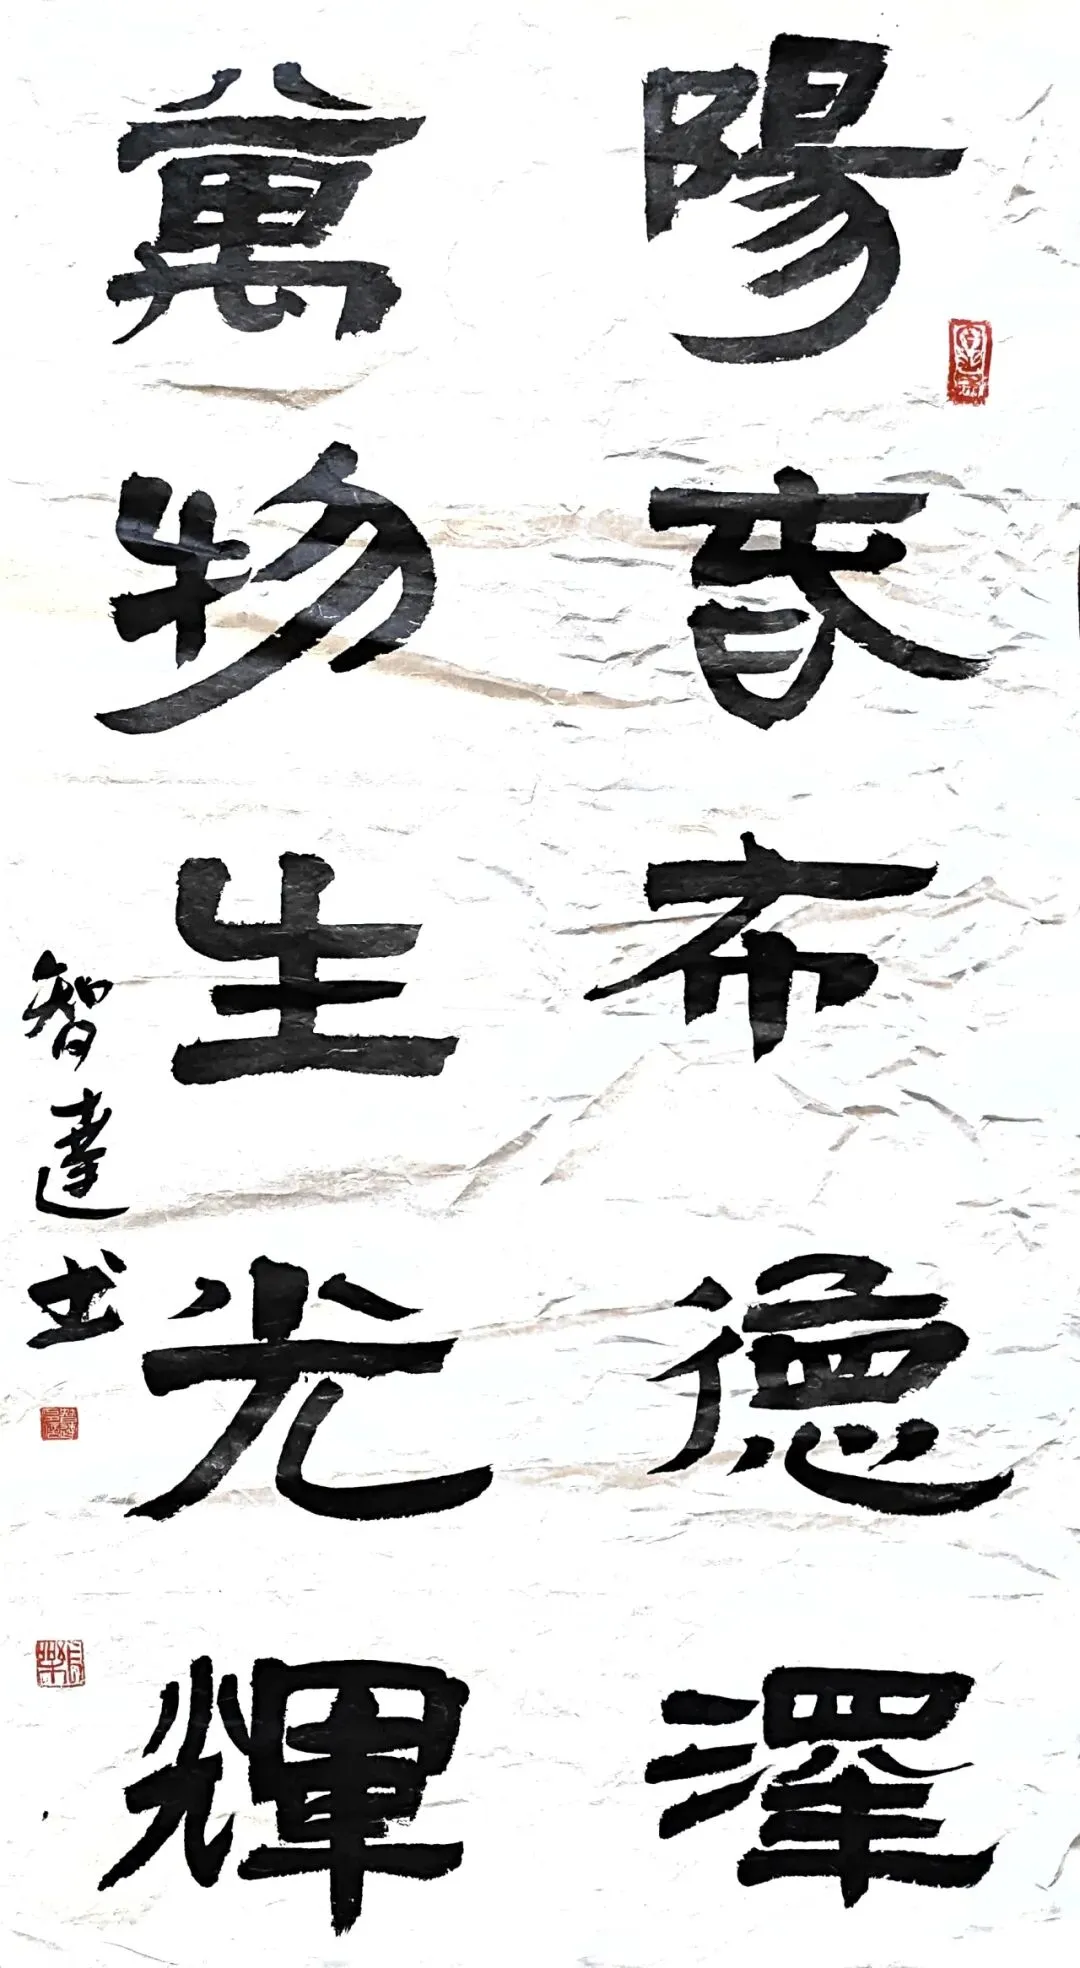 陽春布德澤
萬物生光輝
智達书